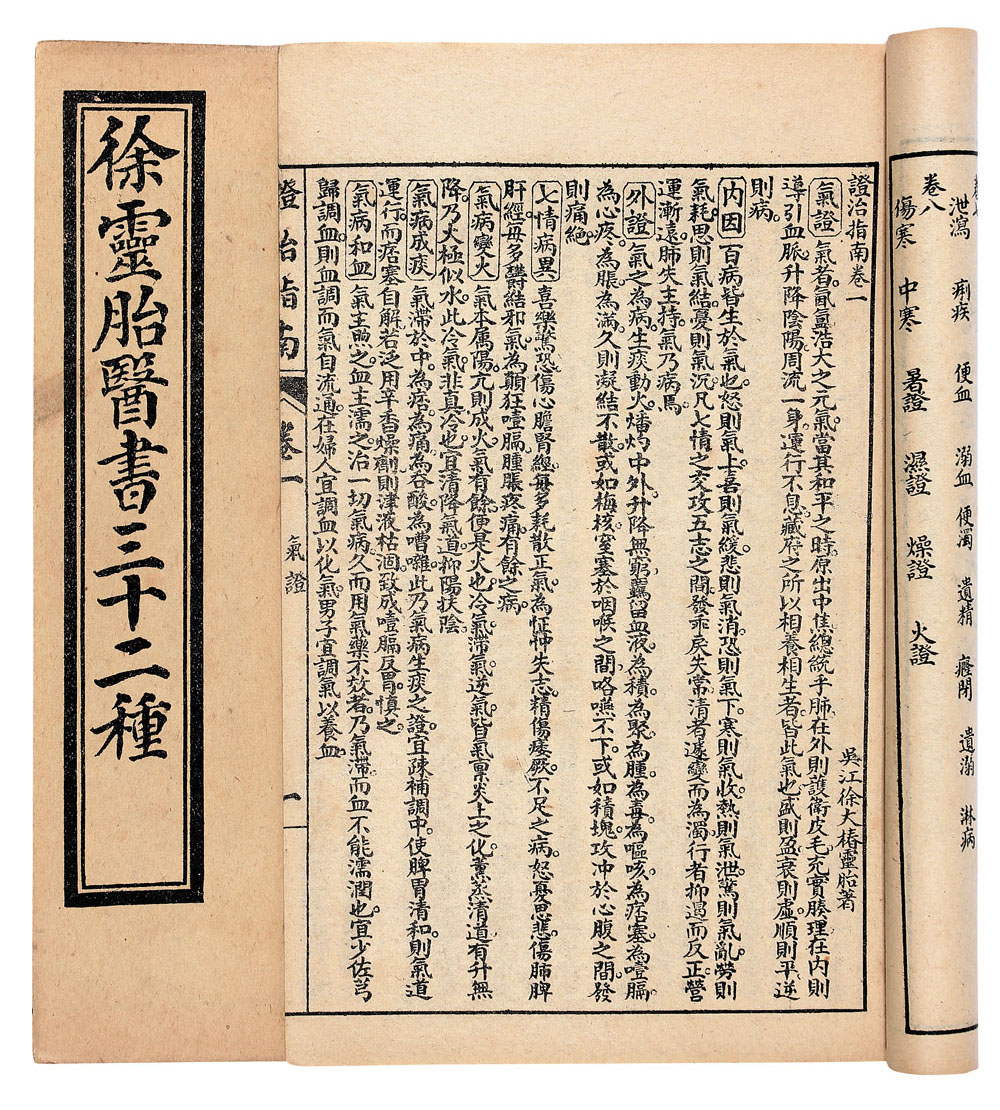 泄瀉 痢疾 便血 溺血 便濁 遺精 癃閉 遺溺 淋病
卷八
傷寒 中寒 暑證 濕證 燥證 火證
證治指南卷一
吳江徐大椿靈胎著
氣證 氣者氤氳浩大之元氣當其和平之時原出中焦總統乎肺在外則護衛皮毛充實腠理在內則
導引血脈升降陰陽周流一身運行不息藏府之所以相養相生者皆此氣也盛則盈衰則虛順則平逆
則病。
內因 百病皆生於氣也怒則氣上喜則氣緩悲則氣消恐則氣下寒則氣收熱則氣泄驚則氣亂勞則
氣耗思則氣結憂則氣沉凡七情之交攻五志之間發乖戾失常清者遽變而為濁行者抑遏而反正營
運漸遠肺失主持氣乃病焉
外證 氣之為病生痰動火燔灼中外升降無窮羈留血液為積為聚為腫為毒為嘔咳為痞塞為噎膈
為心疼為脹為滿久則凝結不散或如梅核窒塞於咽喉之間咯嚥不下或如積塊攻沖於心腹之間發
則痛絕
七情病異 喜樂驚恐傷心膽腎經每多耗散正氣為怔忡失志精傷痿厥不足之病怒憂思悲傷肺脾
肝經每多鬱結邪氣為顛狂噎膈腫脹疼痛有餘之病
氣病變火 氣本屬陽亢則成火氣有餘便是火也冷氣滯氣逆氣皆氣稟炎上之化薰蒸清道有升無
降乃火極似水此冷氣非真冷也宜清降氣道抑陽扶陰
氣病成痰 氣滯於中為痞為痛為吞酸為嘈囃此乃氣病生痰之證宜疎補調中使脾胃清和則氣道
運行而痞塞自解若泛用辛香燥劑則津液枯涸致成噎膈反胃慎之
氣病和血 氣主煦之血主濡之治一切氣病久而用氣藥不效者乃氣滯而血不能濡潤也宜少佐芎
歸調血則血調而氣自流通在婦人宜調血以化氣男子宜調氣以養血
證治指南 卷一 氣證 一
徐靈胎醫書三十二種